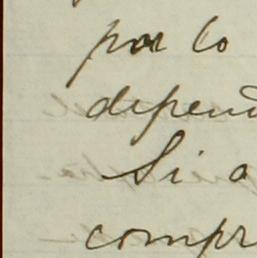 por lo
depend
Si a
compr